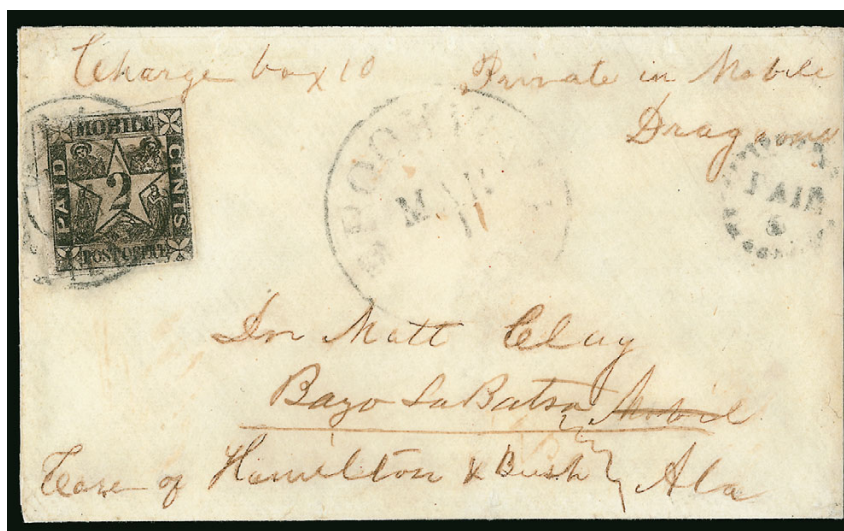 Charge box 10 Private in Mobile
Dragoons
MOBILE
PAID 2 CENTS
POST OFFICE
MAR
11
PAID
Dr Matt Clay
Bayo LaBatre Mobile
Care of Hamilton & Bush Ala